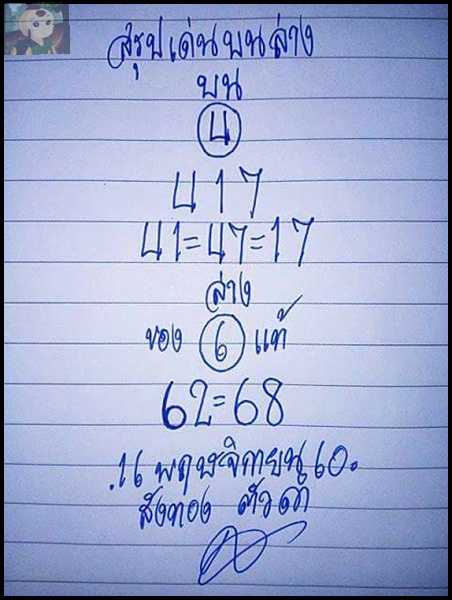 สรุปเด่นบนล่าง
บน
4
4 1 7
41=47=17
ล่าง
ของ 6 แท้
62=68
.16 พฤษจิกายน 60.
สังทอง ตัวดำ